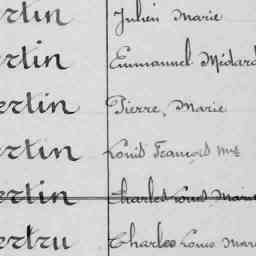 ertin Julien Marie
ertin Emmanuel Médard
ertin Pierre, Marie
ertin Louis François Mie
ertin Charles Louis Marie
ertru Charles Louis Mari